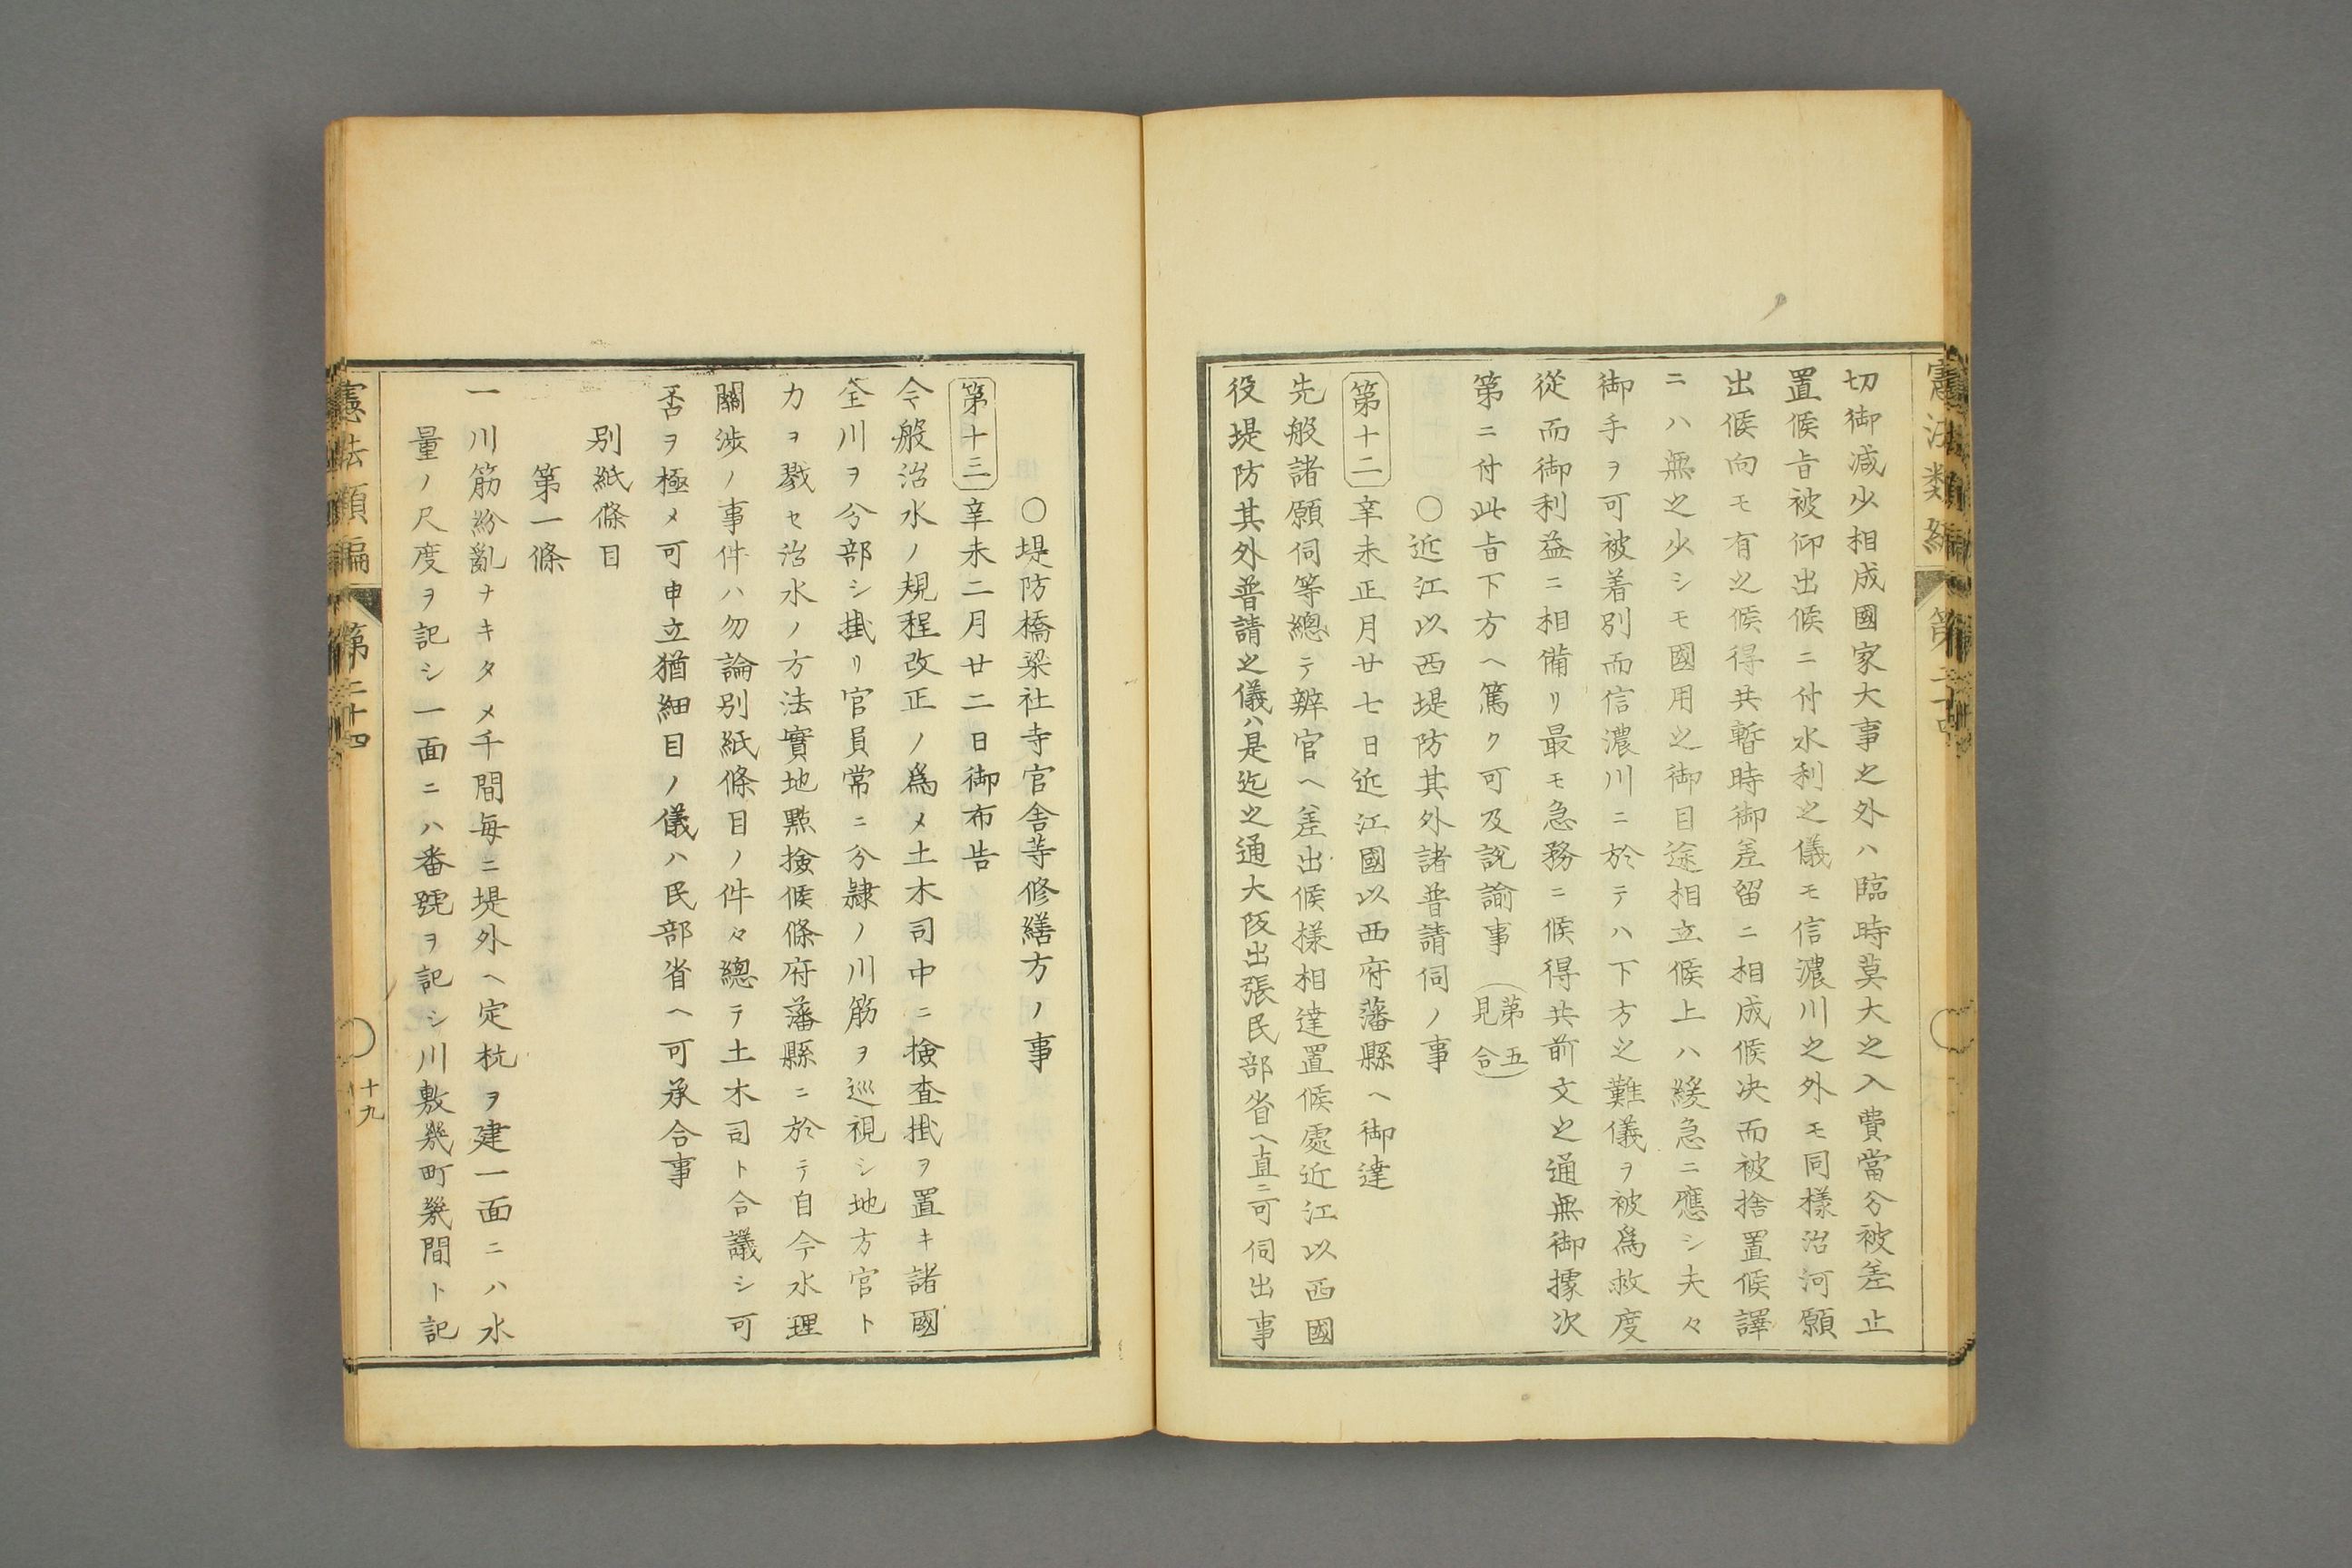 憲法類編
第二十四
切御減少相成國家大事之外ハ臨時莫大之入費當分被差止
置候旨被仰出候ニ付水利之儀モ信濃川之外モ同樣治河願
出候向モ有之候得共暫時御差留ニ相成候決而被捨置候譯
ニハ無之少シモ國用之御目途相立候上ハ緩急ニ應シ夫々
御手ヲ可被着別而信濃川ニ於テハ下方之難儀ヲ被爲救度
從而御利益ニ相備リ最モ急務ニ候得共前文之通無御據次
第ニ付此旨下方ヘ篤ク可及說諭事(第五見合)
○近江以西堤防其外諸普請伺ノ事
第十二 辛未正月廿七日近江國以西府藩縣ヘ御達
先般諸願伺等總テ辨官ヘ差出候樣相達置候處近江以西國
役堤防其外普請之儀ハ是迄之通大阪出張民部省ヘ直ニ可伺出事
○堤防橋梁社寺官舍等修繕方ノ事
第十三 辛未二月廿二日御布告
今般治水ノ規程改正ノ爲メ土木司中ニ撿査掛ヲ置キ諸國
全川ヲ分部シ掛リ官員常ニ分隸ノ川筋ヲ巡視シ地方官ト
力ヲ戮セ治水ノ方法實地點撿候條府藩縣ニ於テ自今水理
關涉ノ事件ハ勿論別紙條目ノ件々總テ土木司ト合議シ可
否ヲ極メ可申立猶細目ノ儀ハ民部省ヘ可承合事
別紙條目
第一條
一川筋紛亂ナキタメ千間每ニ堤外ヘ定杭ヲ建一面ニハ水
量ノ尺度ヲ記シ一面ニハ番號ヲ記シ川敷幾町幾間ト記
憲法類編
第二十四
十九